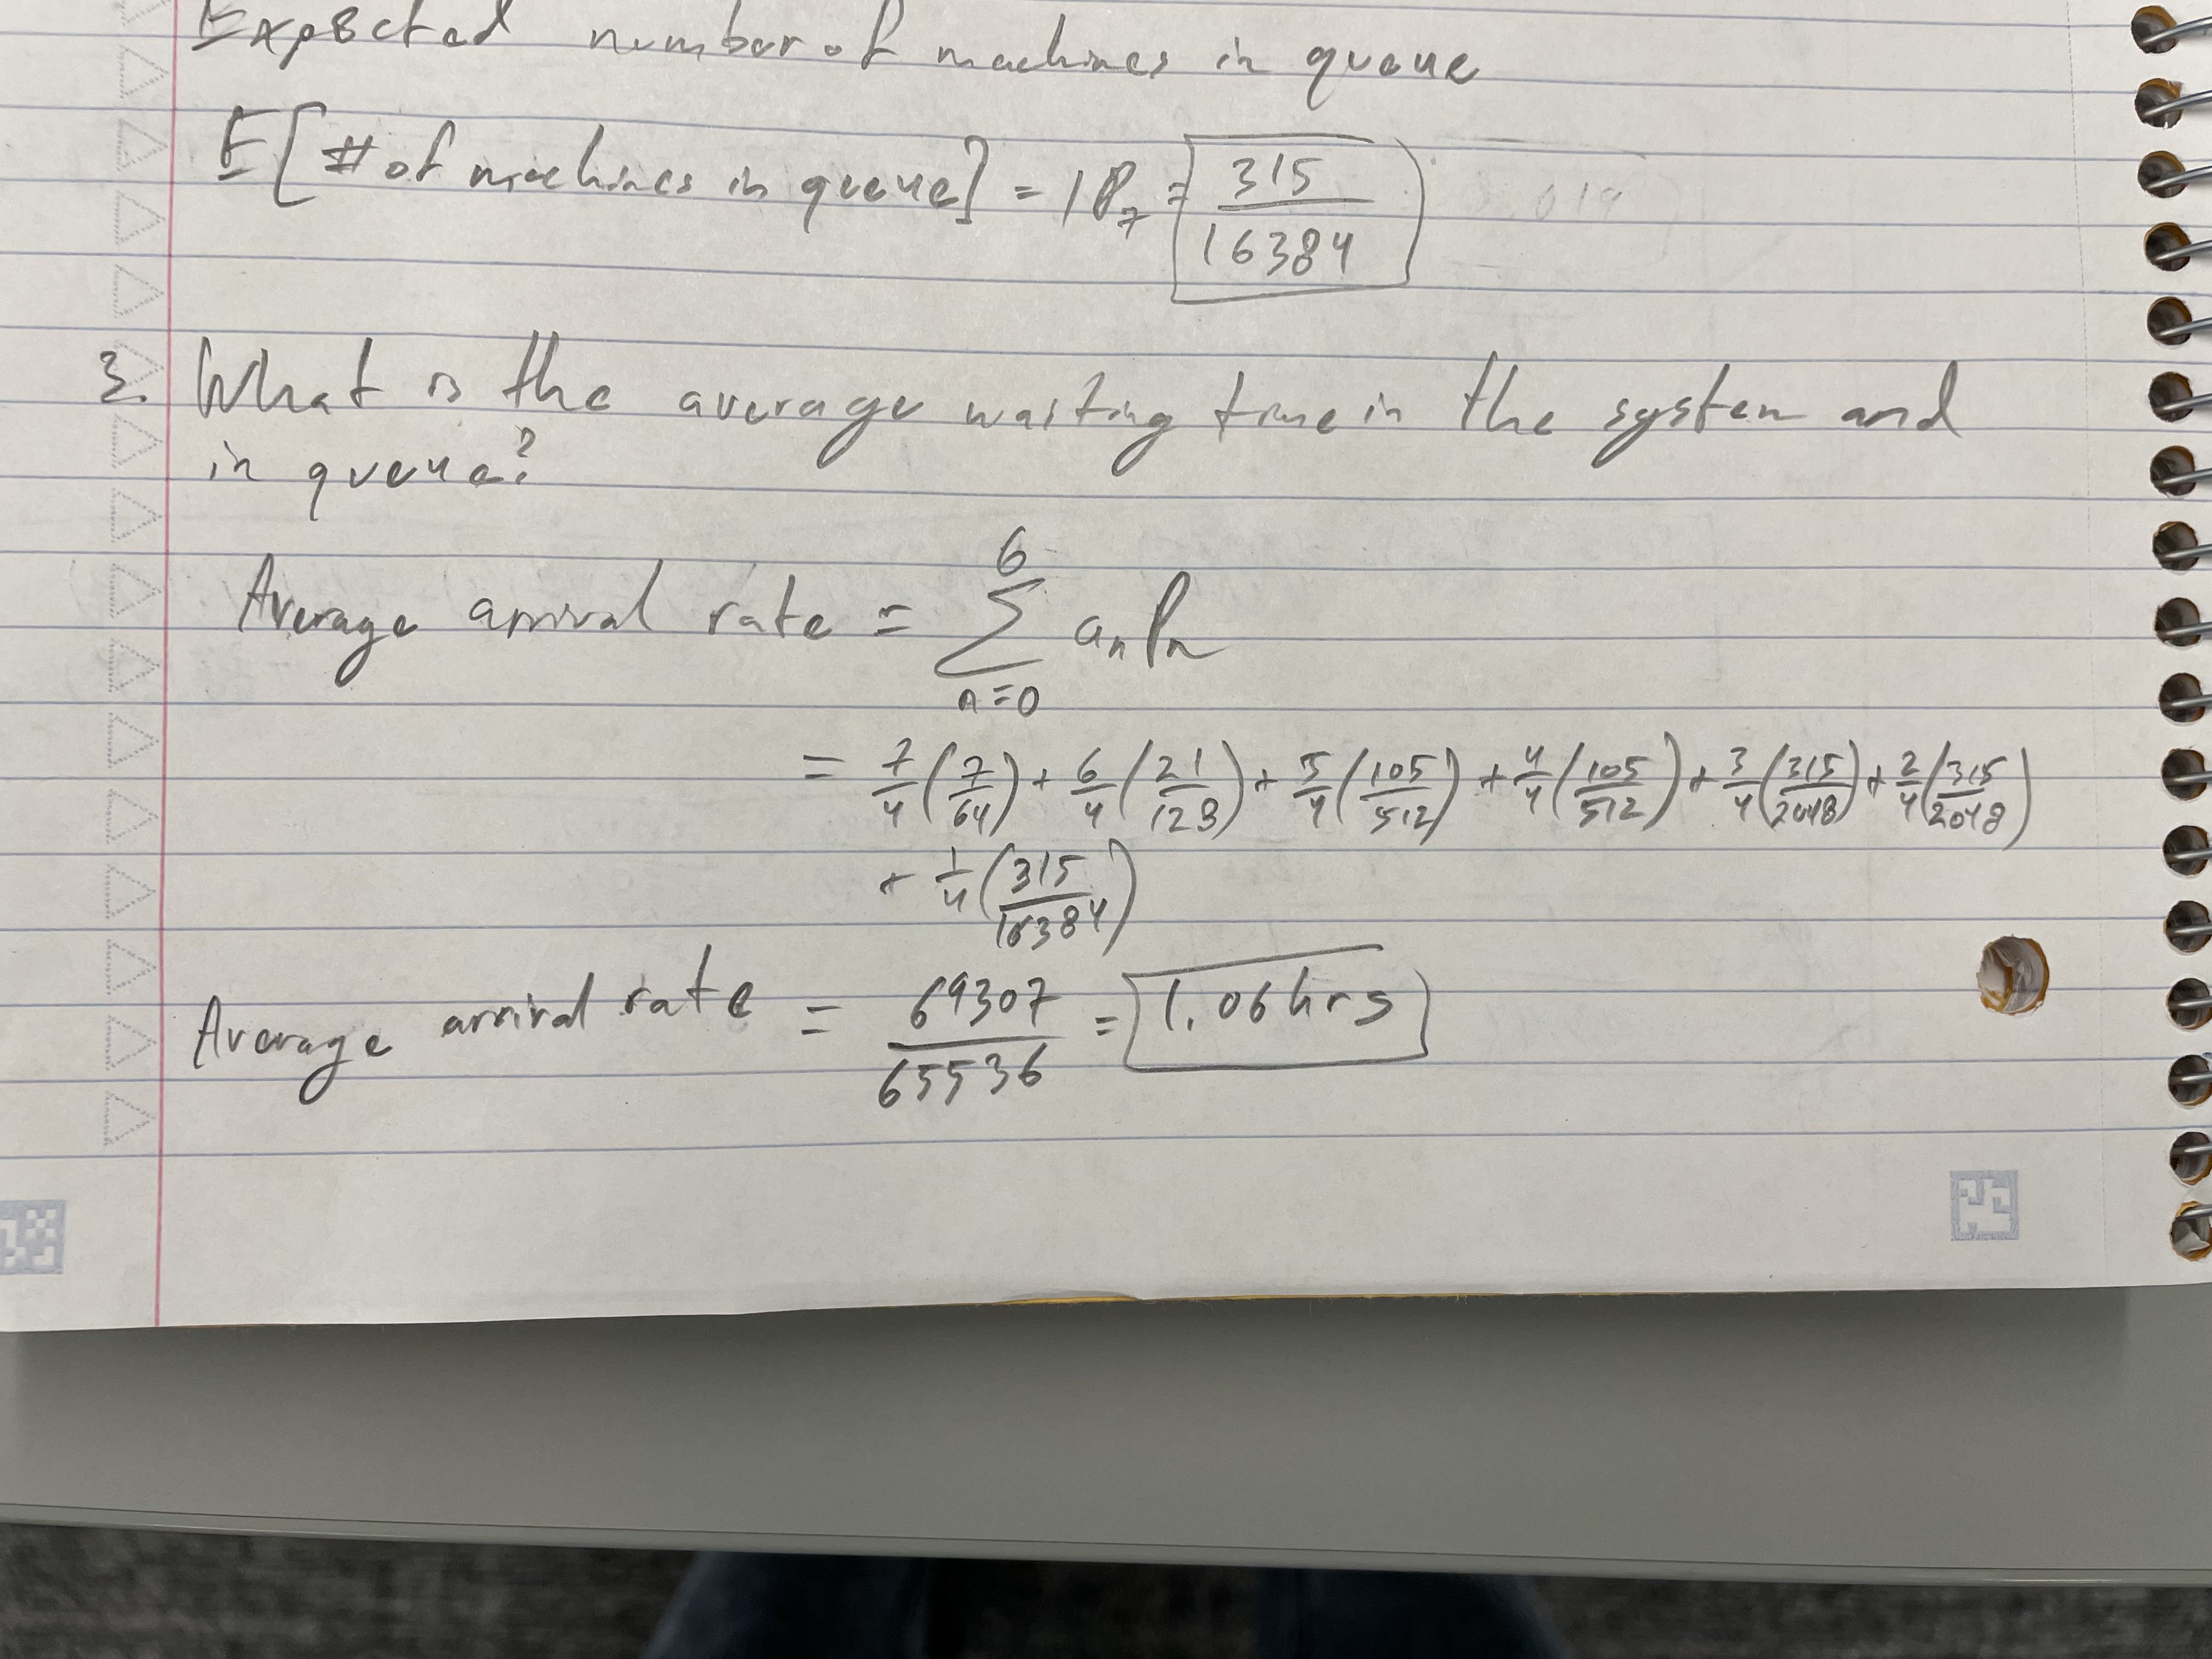 Expected number of machines in queue
E[# of machines in queue] = 1P₇ = 315/16384
3. What is the average waiting time in the system and
in queue?
Average arrival rate = 6 Σ n=0 aₙPₙ
= 7/4 (7/64) + 6/4 (21/128) + 5/4 (105/512) + 4/4 (105/512) + 3/4 (315/2048) + 2/4 (315/2048)
+ 1/4 (315/16384)
Average arrival rate = 69307/65536 = 1.06hrs